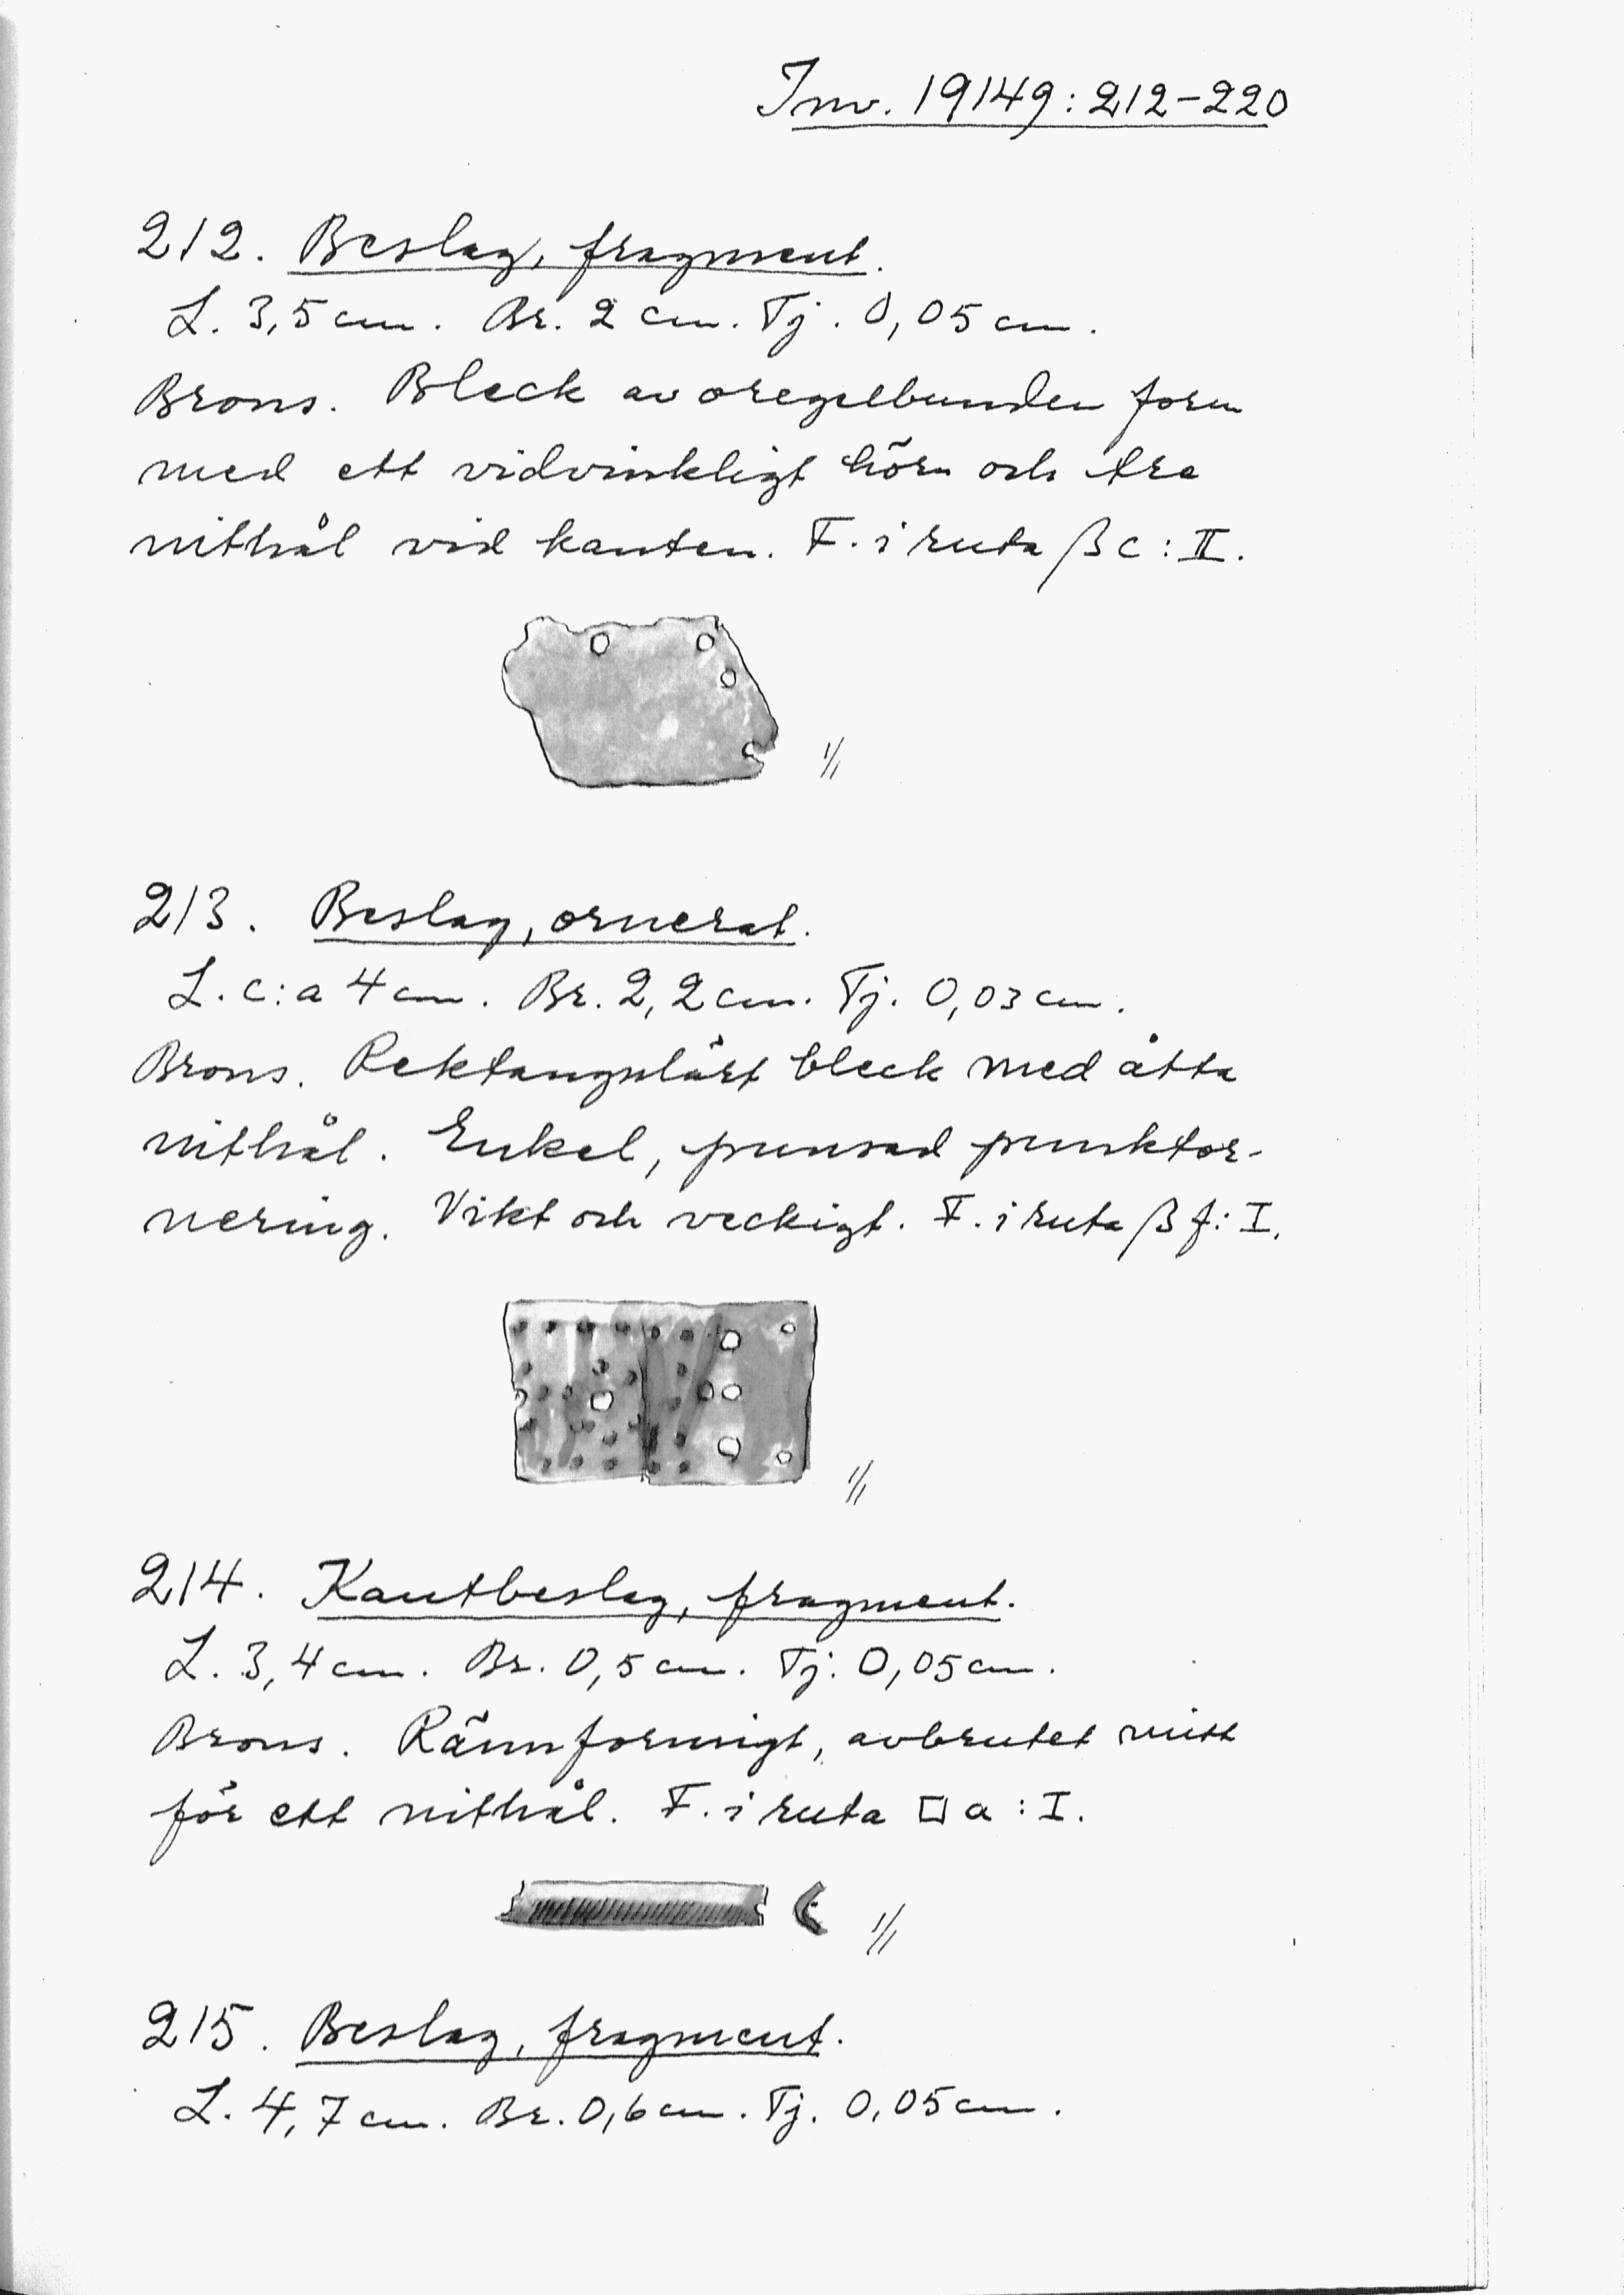 Inv. 19149:212-220
212. Beslag, fragment.
L. 3,5 cm. Br. 2 cm. Tj. 0,05 cm.
Brons. Bleck av oregelbunden form
med ett vidvinkligt hörn och tre
nithål vid kanten. F. i ruta β c : II.
1/1
213. Beslag, ornerat.
L. c:a 4 cm. Br. 2,2 cm. Tj. 0,03 cm.
Brons. Rektangulärt bleck med åtta
nithål. Enkel, punsad punktor-
nering. Vikt och veckigt. F. i ruta β f: I.
1/1
214. Kantbeslag, fragment.
L. 3,4 cm. Br. 0,5 cm. Tj. 0,05 cm.
Brons. Rännformigt, avbrutet mitt
för ett nithål. F. i ruta □ a : I.
1/1
215. Beslag, fragment.
L. 4,7 cm. Br. 0,6 cm. Tj. 0,05 cm.